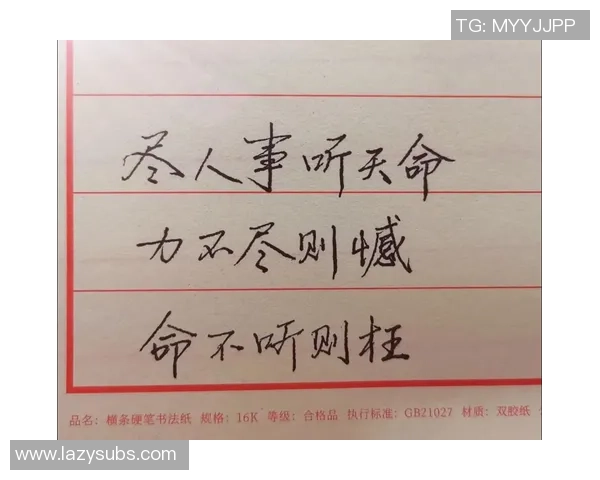 TG: MYYJJPP
尽人事听天命
力不尽则憾
命不听则枉
品名：横条硬笔书法纸 规格：16K 等级：合格品 执行标准：GB21027 材质：双胶纸
www.lazysubs.com